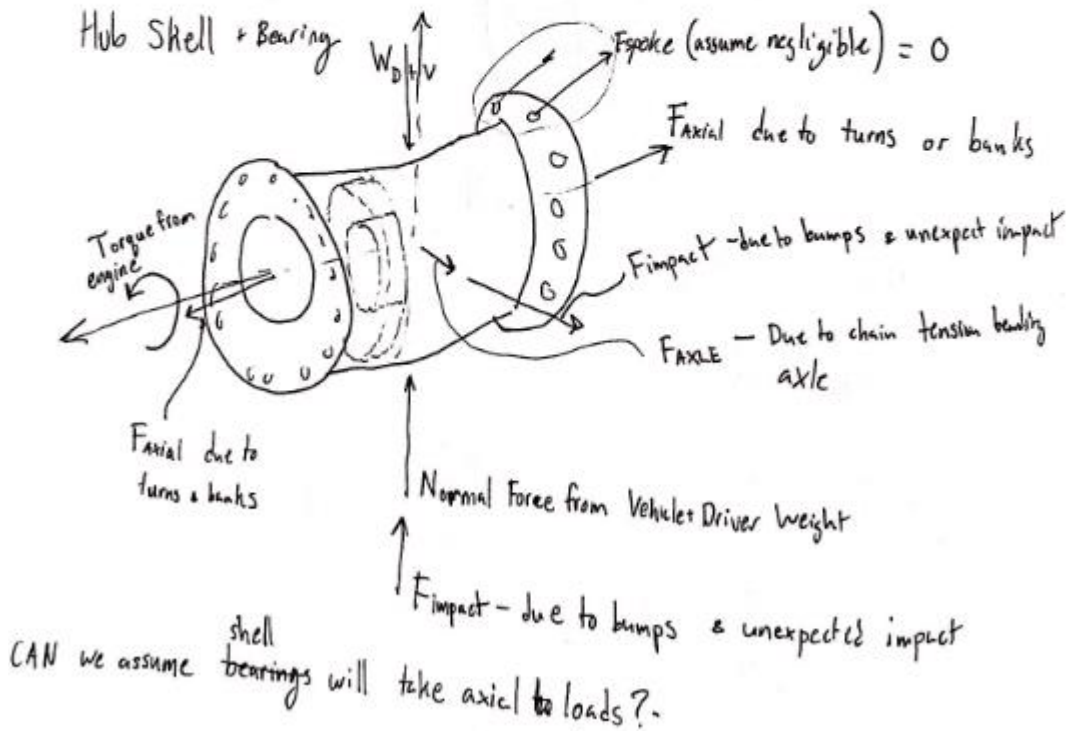 Hub Shell + Bearing
W_D+V
Fspoke (assume negligible) = 0
FAxial due to turns or banks
Fimpact - due to bumps & unexpect impact
Torque from
engine
FAXLE - Due to chain tension bending
axle
FAxial due to
turns & banks
Normal Force from Vehicle+Driver Weight
Fimpact - due to bumps & unexpected impact
shell
CAN we assume bearings will take axial to loads?.